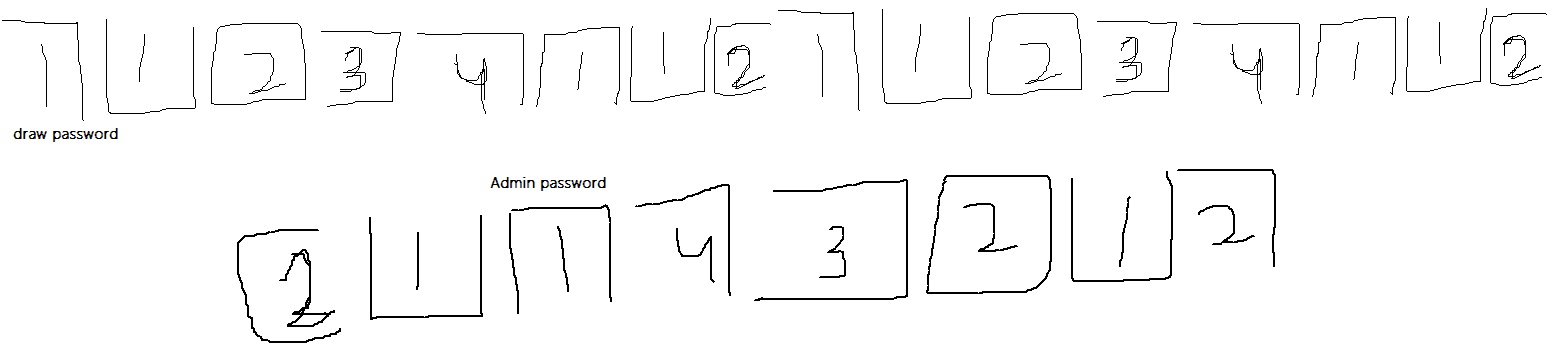 1 1 2 3 4 1 1 2 1 1 2 3 4 1 1 2
draw password
Admin password
2 1 1 4 3 2 1 2